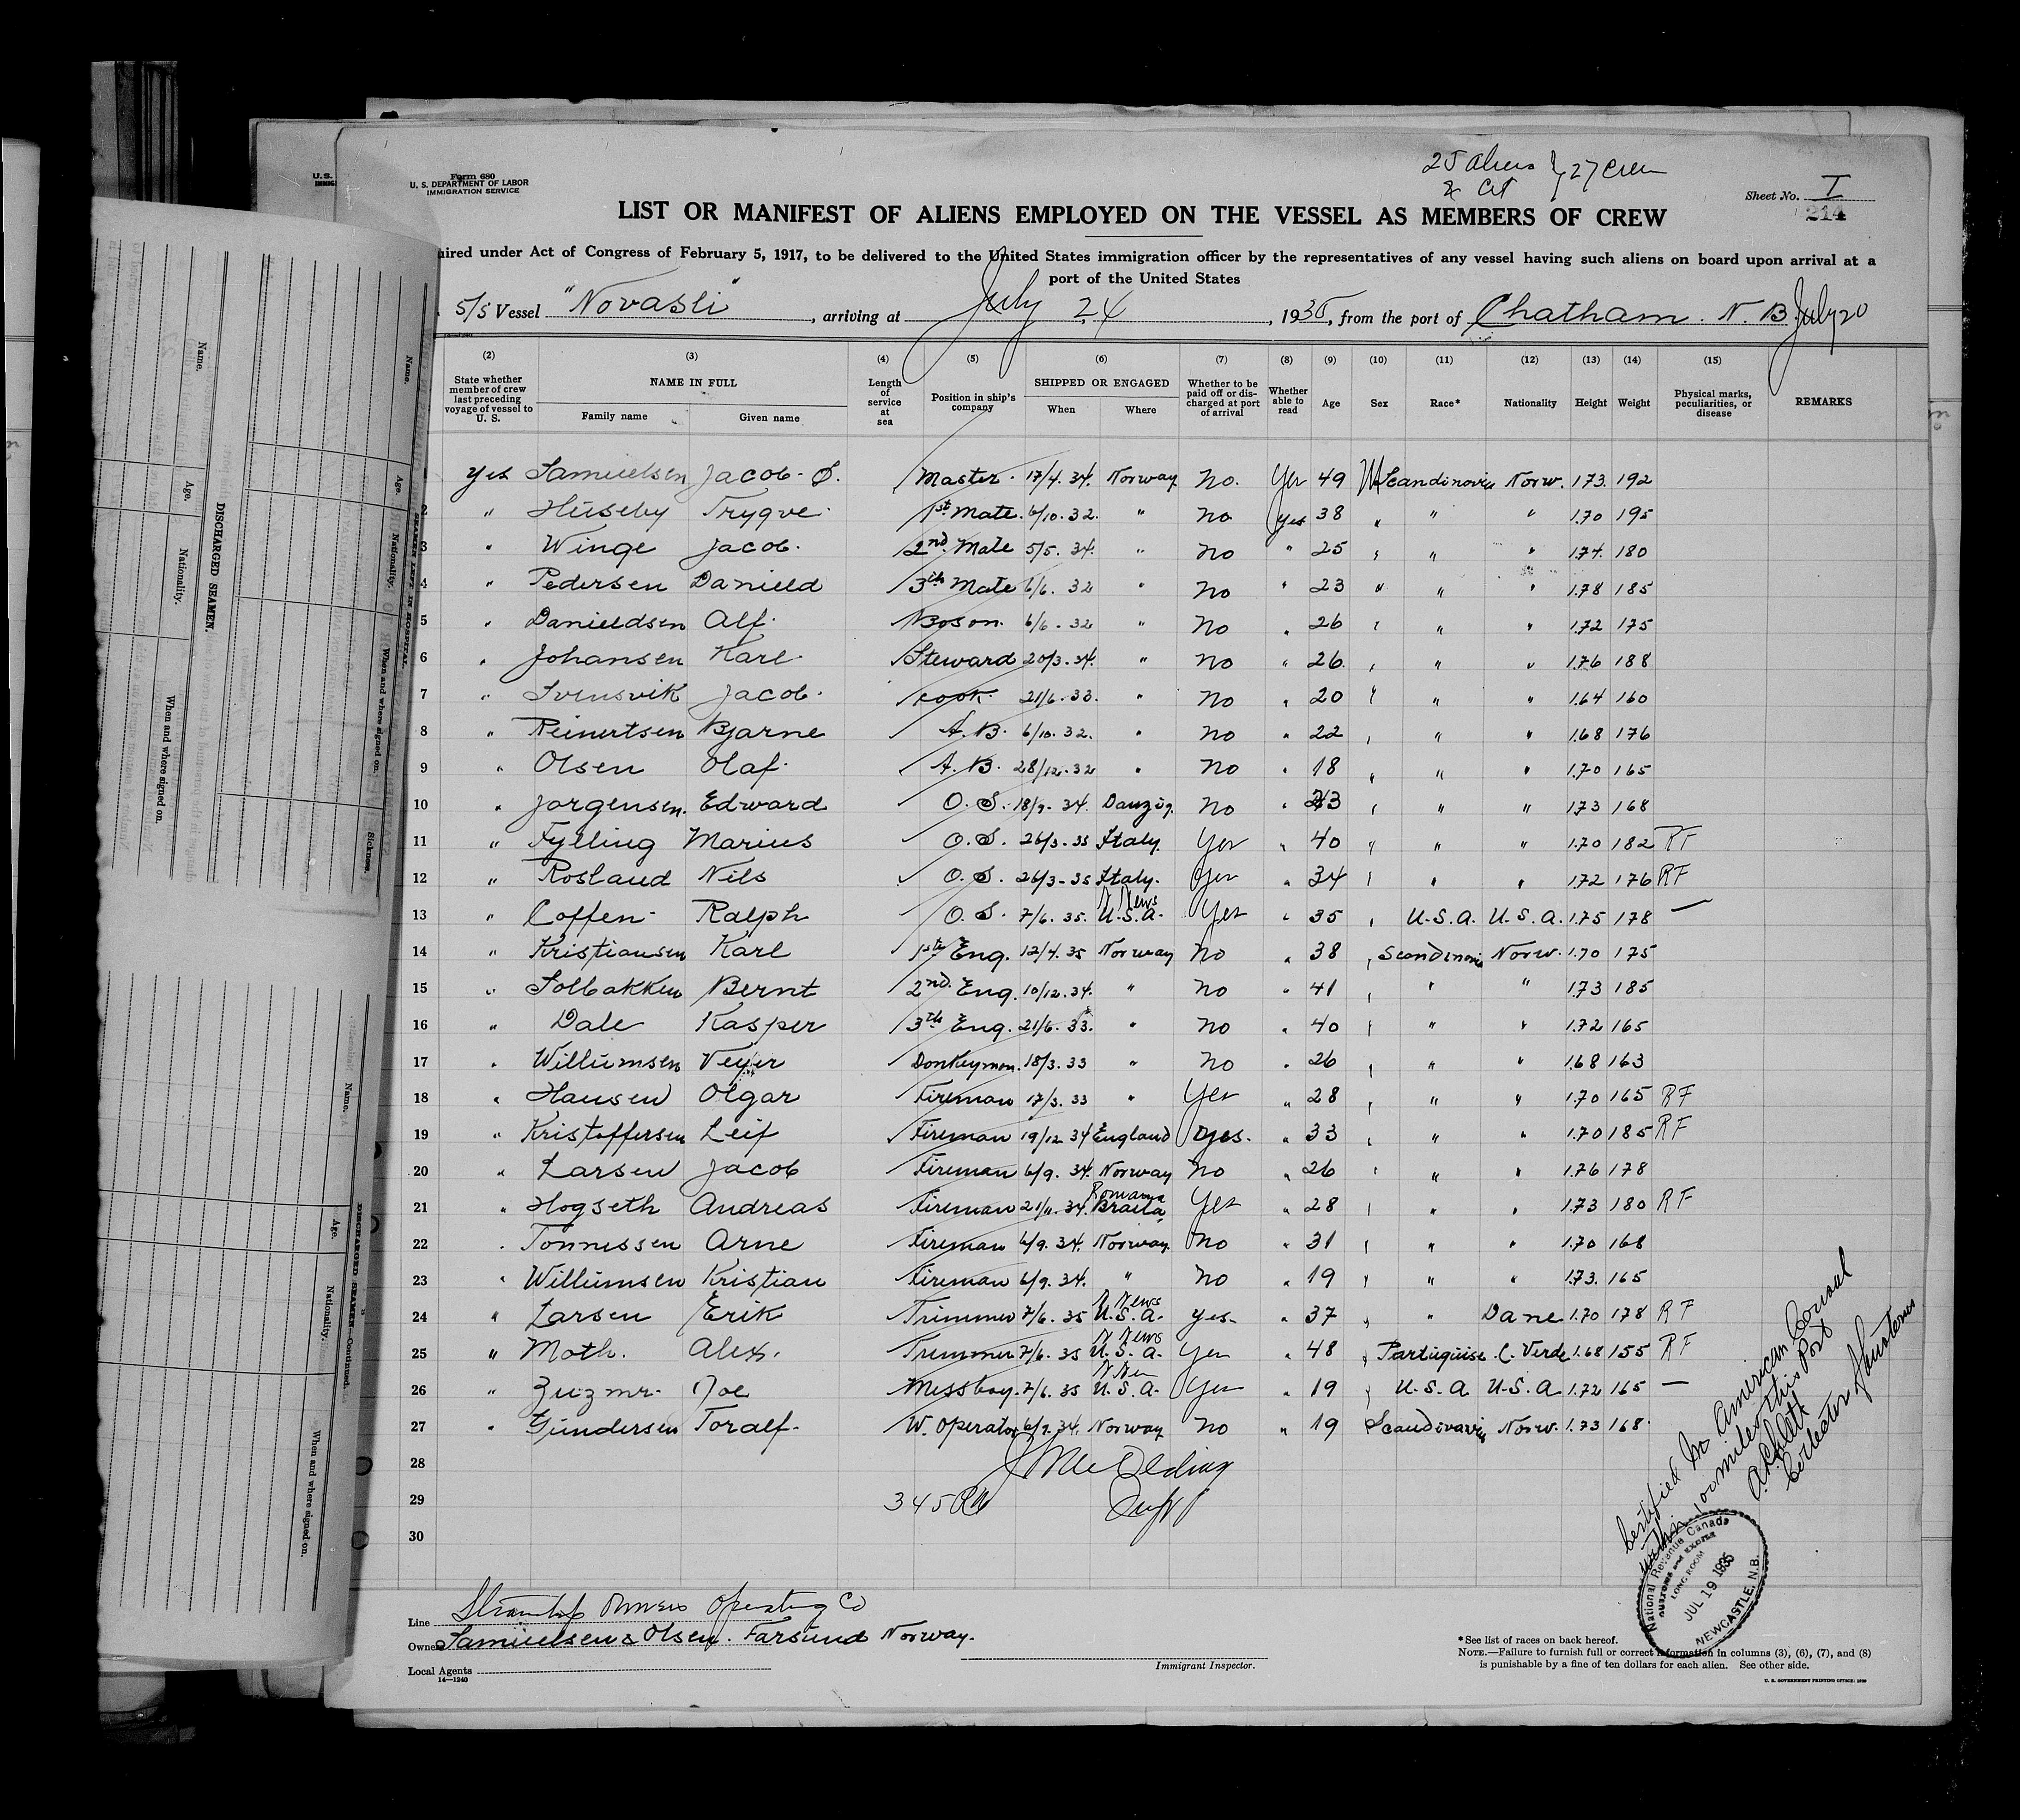 Form 680
U. S. DEPARTMENT OF LABOR
IMMIGRATION SERVICE
25 aliens } 27 Crew
2 Cit
Sheet No. I
214
LIST OR MANIFEST OF ALIENS EMPLOYED ON THE VESSEL AS MEMBERS OF CREW
uired under Act of Congress of February 5, 1917, to be delivered to the United States immigration officer by the representatives of any vessel having such aliens on board upon arrival at a
port of the United States
S/S Vessel "Novasli", arriving at July 24, 1935, from the port of Chatham. N. B. July 20
(2) (3) (4) (5) (6) (7) (8) (9) (10) (11) (12) (13) (14) (15)
State whether member of crew last preceding voyage of vessel to U. S.
NAME IN FULL
Family name Given name
Length of service at sea
Position in ship's company
SHIPPED OR ENGAGED
When Where
Whether to be paid off or discharged at port of arrival
Whether able to read
Age
Sex
Race*
Nationality
Height
Weight
Physical marks, peculiarities, or disease
REMARKS
1 Yes Samuelsen Jacob. S. Master. 17/4. 34. Norway No. Yes 49 M Scandinavia Norw. 173. 192
2 " Huseby Trygve. 1st Mate. 6/10. 32. " No yes 38 " " " 1.70 195
3 " Winge Jacob. 2nd Mate 5/5. 34. " No " 25 " " " 1.74. 180
4 " Pedersen Danield 3th Mate 6/6. 32 " No " 23 " " " 1.78 185
5 " Danieldsen Alf. Boson. 6/6. 32 " No " 26 " " " 1.72 175
6 " Johansen Karl. Steward 20/3. 34. " No " 26. " " " 1.76 188
7 " Svensvik Jacob. Cook. 21/6. 33. " No " 20 " " " 1.64 160
8 " Reinertsen Bjarne A. B. 6/10. 32. " No " 22 " " " 1.68 176
9 " Olsen Olaf. A. B. 28/12. 32 " No " 18 " " " 1.70 165
10 " Jorgensen. Edward O. S. 18/9. 34. Danzig. No " 23 " " " 173 168
11 " Fylling Marius O. S. 26/3. 35 Italy. Yes " 40 " " " 1.70 182 RF
12 " Rosland Nils O. S. 26/3. 35 Italy. Yes " 34 " " " 1.72 176 RF
13 " Coffen. Ralph O. S. 7/6. 35. N News U.S.A. Yes " 35 " U.S.A. U.S.A. 1.75 178 —
14 " Kristiansen Karl 1st Eng. 12/4. 35 Norway No " 38 " Scandinavia Norw. 1.70 175
15 " Solbakken Bernt 2nd Eng. 10/12. 34. " No " 41 " " " 1.73 185
16 " Dale Kasper 3th Eng. 21/6. 33. " No " 40 " " " 1.72 165
17 " Willumsen Donkeyman. 18/3. 33 " No " 26 " " " 1.68 163
18 " Hansen Olgar Fireman 17/3. 33 " Yes " 28 " " " 1.70 165 RF
19 " Kristoffersen Leif Fireman 19/12 34 England yes. " 33 " " " 1.70 185 RF
20 " Larsen Jacob Fireman 6/9. 34. Norway No " 26 " " " 1.76 178
21 " Hogseth Andreas Fireman 21/11. 34. Romania Braila Yes " 28 " " " 1.73 180 RF
22 " Tönnessen Arne Fireman 6/9. 34. Norway. No " 31 " " " 1.70 168
23 " Willumsen Kristian Fireman 6/9. 34. " No " 19 " " " 1.73. 165
24 " Larsen Erik Trimmer 7/6. 35 N News U.S.A. yes. " 37 " " Dane 1.70 178 RF
25 " Moth. Alex. Tremmer 7/6. 35 N News U.S.A. Yes " 48 " Partuguise C. Verde 1.68 155 RF
26 " Joe Messboy. 7/6. 35 N New U.S.A. Yes " 19 " U.S.A U.S.A 1.72 165 —
27 " Gundersen Toralf. W. Operator 6/9. 34. Norway No " 19 Scandinavia Norw. 1.73 168
28
29 345
30
Certified No American Consul
within 100 miles of this Port
Collector
National Revenue Canada
CUSTOMS and EXCISE
LONG ROOM
JUL 19 1935
NEWCASTLE, N.B.
Line Steamship Owners Operating Co
Owners Samuelsen & Olsen. Farsund Norway.
Local Agents
14—1240
Immigrant Inspector.
*See list of races on back hereof.
NOTE.—Failure to furnish full or correct information in columns (3), (6), (7), and (8)
is punishable by a fine of ten dollars for each alien. See other side.
U. S. GOVERNMENT PRINTING OFFICE
SEAMEN LEFT IN HOSPITAL
Name. Age. Nationality. When and where signed on. Sickness.
DISCHARGED SEAMEN.
Name. Age. Nationality. When and where signed on.
DISCHARGED SEAMEN—Continued.
Name. Age. Nationality. When and where signed on.